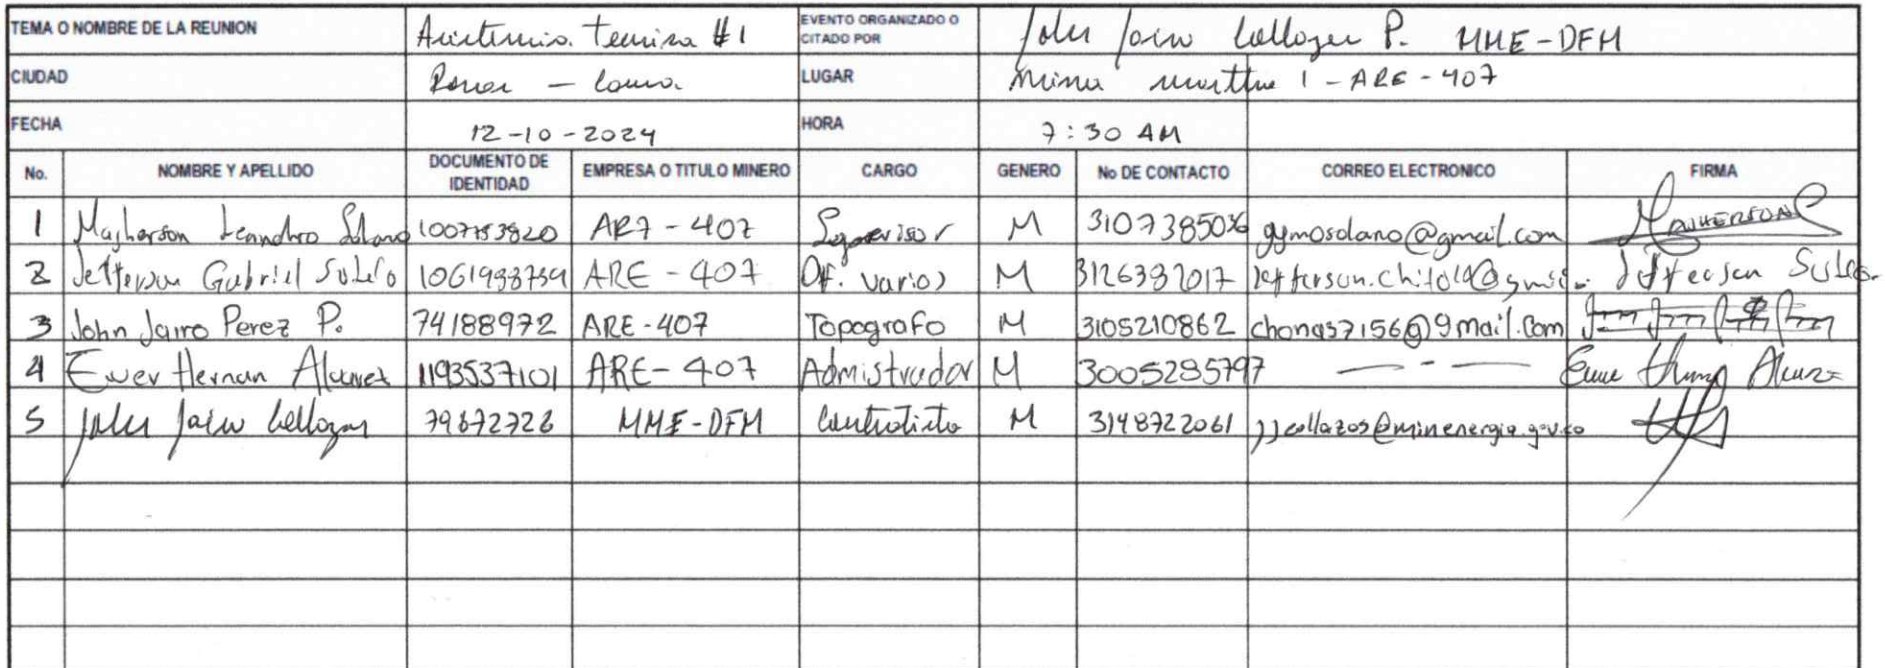 TEMA O NOMBRE DE LA REUNION Asistencia Tecnica #1 EVENTO ORGANIZADO O CITADO POR John Jairo Collazos P. MME-DFM
CIUDAD LUGAR Mina 1 - ARE - 407
FECHA 12-10-2024 HORA 7:30 AM
No. NOMBRE Y APELLIDO DOCUMENTO DE IDENTIDAD EMPRESA O TITULO MINERO CARGO GENERO No DE CONTACTO CORREO ELECTRONICO FIRMA
1 Leandro Solano AR7-407 Supervisor M 3107385036 gymosolano@gmail.com
2 Jefferson Gabriel ARE-407 Of. varios M Jefferson
3 John Jairo Perez P. 74188972 ARE-407 Topografo M 3105210862 chonas37156@gmail.com
4 Ever Hernan Alvarez 1193537101 ARE-407 Admistrador M 3005285797 - - -
5 John Jairo Collazos MME-DFM Contratista M 3148722061 jjcollazos@minenergia.gov.co